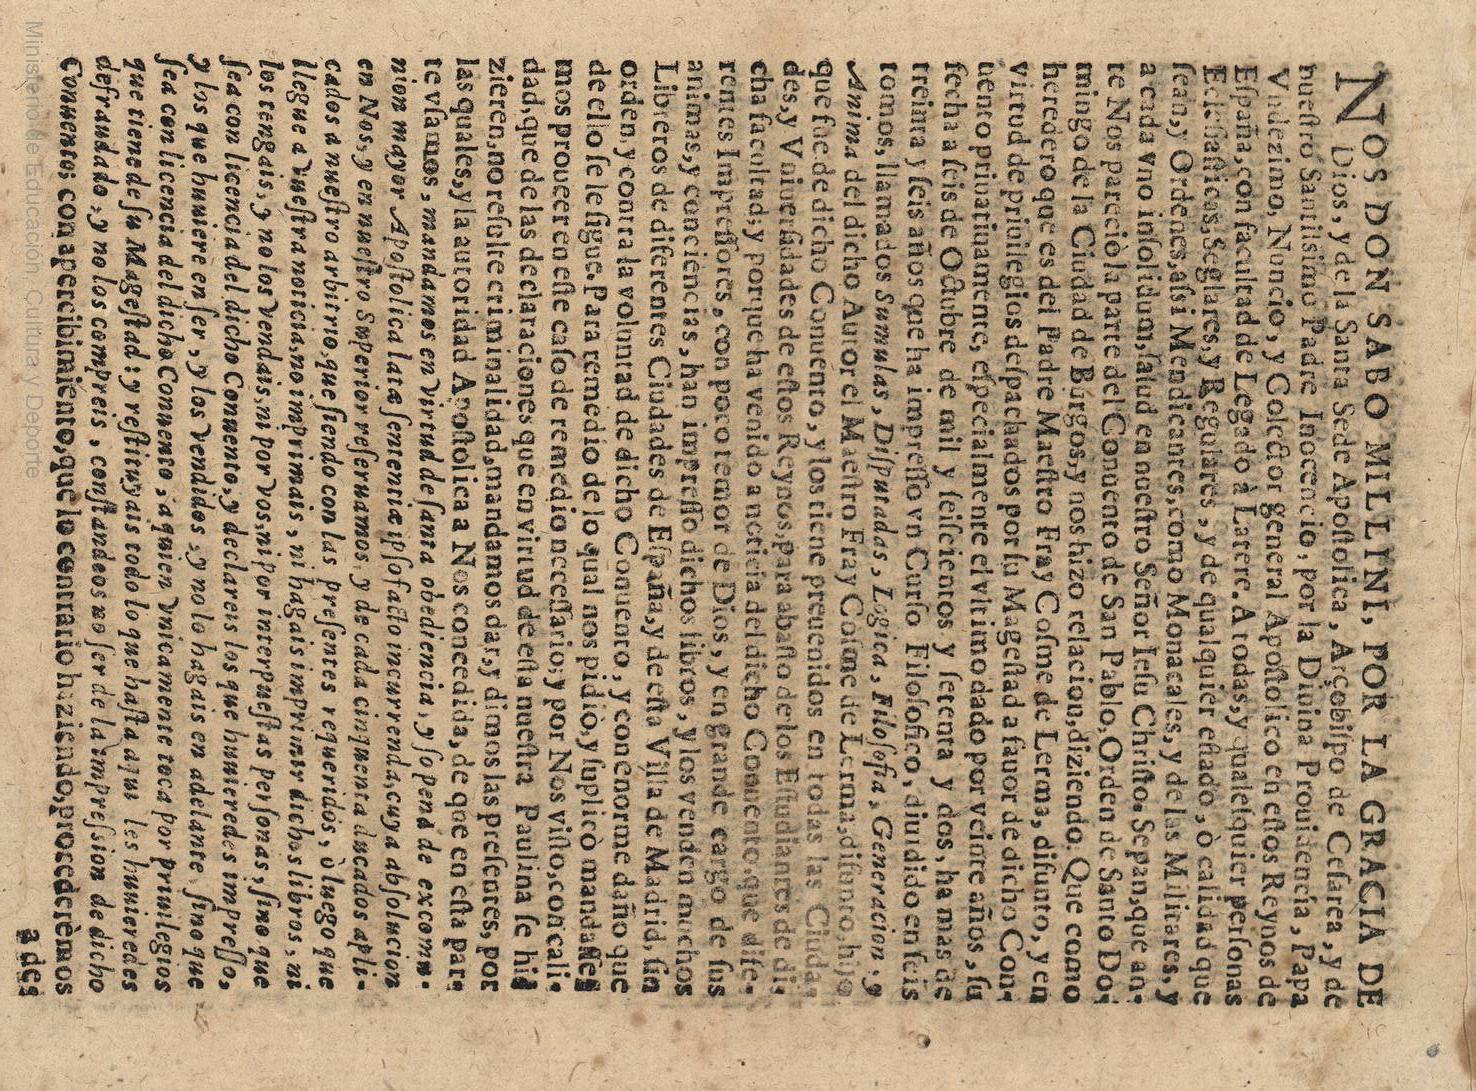 NOS DON SABO MILLINI, POR LA GRACIA DE
Dios, y de la Santa Sede Apostolica, Arçobispo de Cesarea, y de
nuestro Santissimo Padre Inocencio, por la Diuina Prouidencia, Papa
Vndezimo, Nuncio, y Colector general Apostolico en estos Reynos de
España, con facultad de Legado à Latere. A todas, y qualesquier personas
Eclesiasticas, Seglares, y Regulares, y de qualquier estado, ò calidad que
sean, y Ordenes, assi Mendicantes, como Monacales, y de las Militares, y
a cada vno insolidum, salud en nuestro Señor Iesu Christo. Sepan, que an-
te Nos pareciò la parte del Conuento de San Pablo, Orden de Santo Do-
mingo de la Ciudad de Burgos, y nos hizo relacion, diziendo. Que como
heredero que es del Padre Maestro Fray Cosme de Lerma, difunto, y en
virtud de priuilegios despachados por su Magestad a fauor de dicho Con-
uento priuatiuamente, especialmente el vltimo dado por veinte años, su
fecha a seis de Octubre de mil y seiscientos y setenta y dos, ha mas de
treinta y seis años que ha impresso vn Curso Filosofico, diuidido en seis
tomos, llamados Sumulas, Disputadas, Logica, Filosofia, Generacion, y
Anima del dicho Autor el Maestro Fray Cosme de Lerma, difunto, hijo
que fue de dicho Conuento, y los tiene preuenidos en todas las Ciuda-
des, y Vniuersidades de estos Reynos, para abasto de los Estudiantes de di-
cha facultad; y porque ha venido a noticia del dicho Conuento, que dife-
rentes Impressores, con poco temor de Dios, y en grande cargo de sus
animas, y conciencias, han impresso dichos libros, y los venden muchos
Libreros de diferentes Ciudades de España, y de esta Villa de Madrid, sin
orden, y contra la voluntad de dicho Conuento, y con enorme daño que
de ello se le sigue. Para remedio de lo qual nos pidio, y suplicò mandasse-
mos proueer en este caso de remedio necessario; y por Nos visto, con cali-
dad, que de las declaraciones que en virtud de esta nuestra Paulina se hi-
zieren, no resulte criminalidad, mandamos dar, y dimos las presentes, por
las quales, y la autoridad Apostolica a Nos concedida, de que en esta par-
te vsamos, mandamos en virtud de santa obediencia, y so pena de excomu-
nion mayor Apostolica latæ sententiæ ipso facto incurrenda, cuya absolucion
en Nos, y en nuestro Superior reseruamos, y de cada cinquenta ducados apli-
cados a nuestro arbitrio, que siendo con las presentes requeridos, ò luego que
llegue a vuestra noticia, no imprimais, ni hagais imprimir dichos libros, ni
los tengais, y no los vendais, ni por vos, ni por interpuestas personas, sino que
sea con licencia del dicho Conuento, y declareis los que huuieredes impresso,
y los que huuiere en ser, y los vendidos, y no lo hagais en adelante, sino que
sea con licencia del dicho Conuento, a quien vnicamente toca por priuilegios
que tiene de su Magestad: y restituyais todo lo que hasta aqui les huuieredes
defraudado, y no los compreis, constandeos no ser de la impression de dicho
Conuento; con apercibimiento, que lo contrario haziendo, procederèmos
a des
Ministerio de Educación, Cultura y Deporte